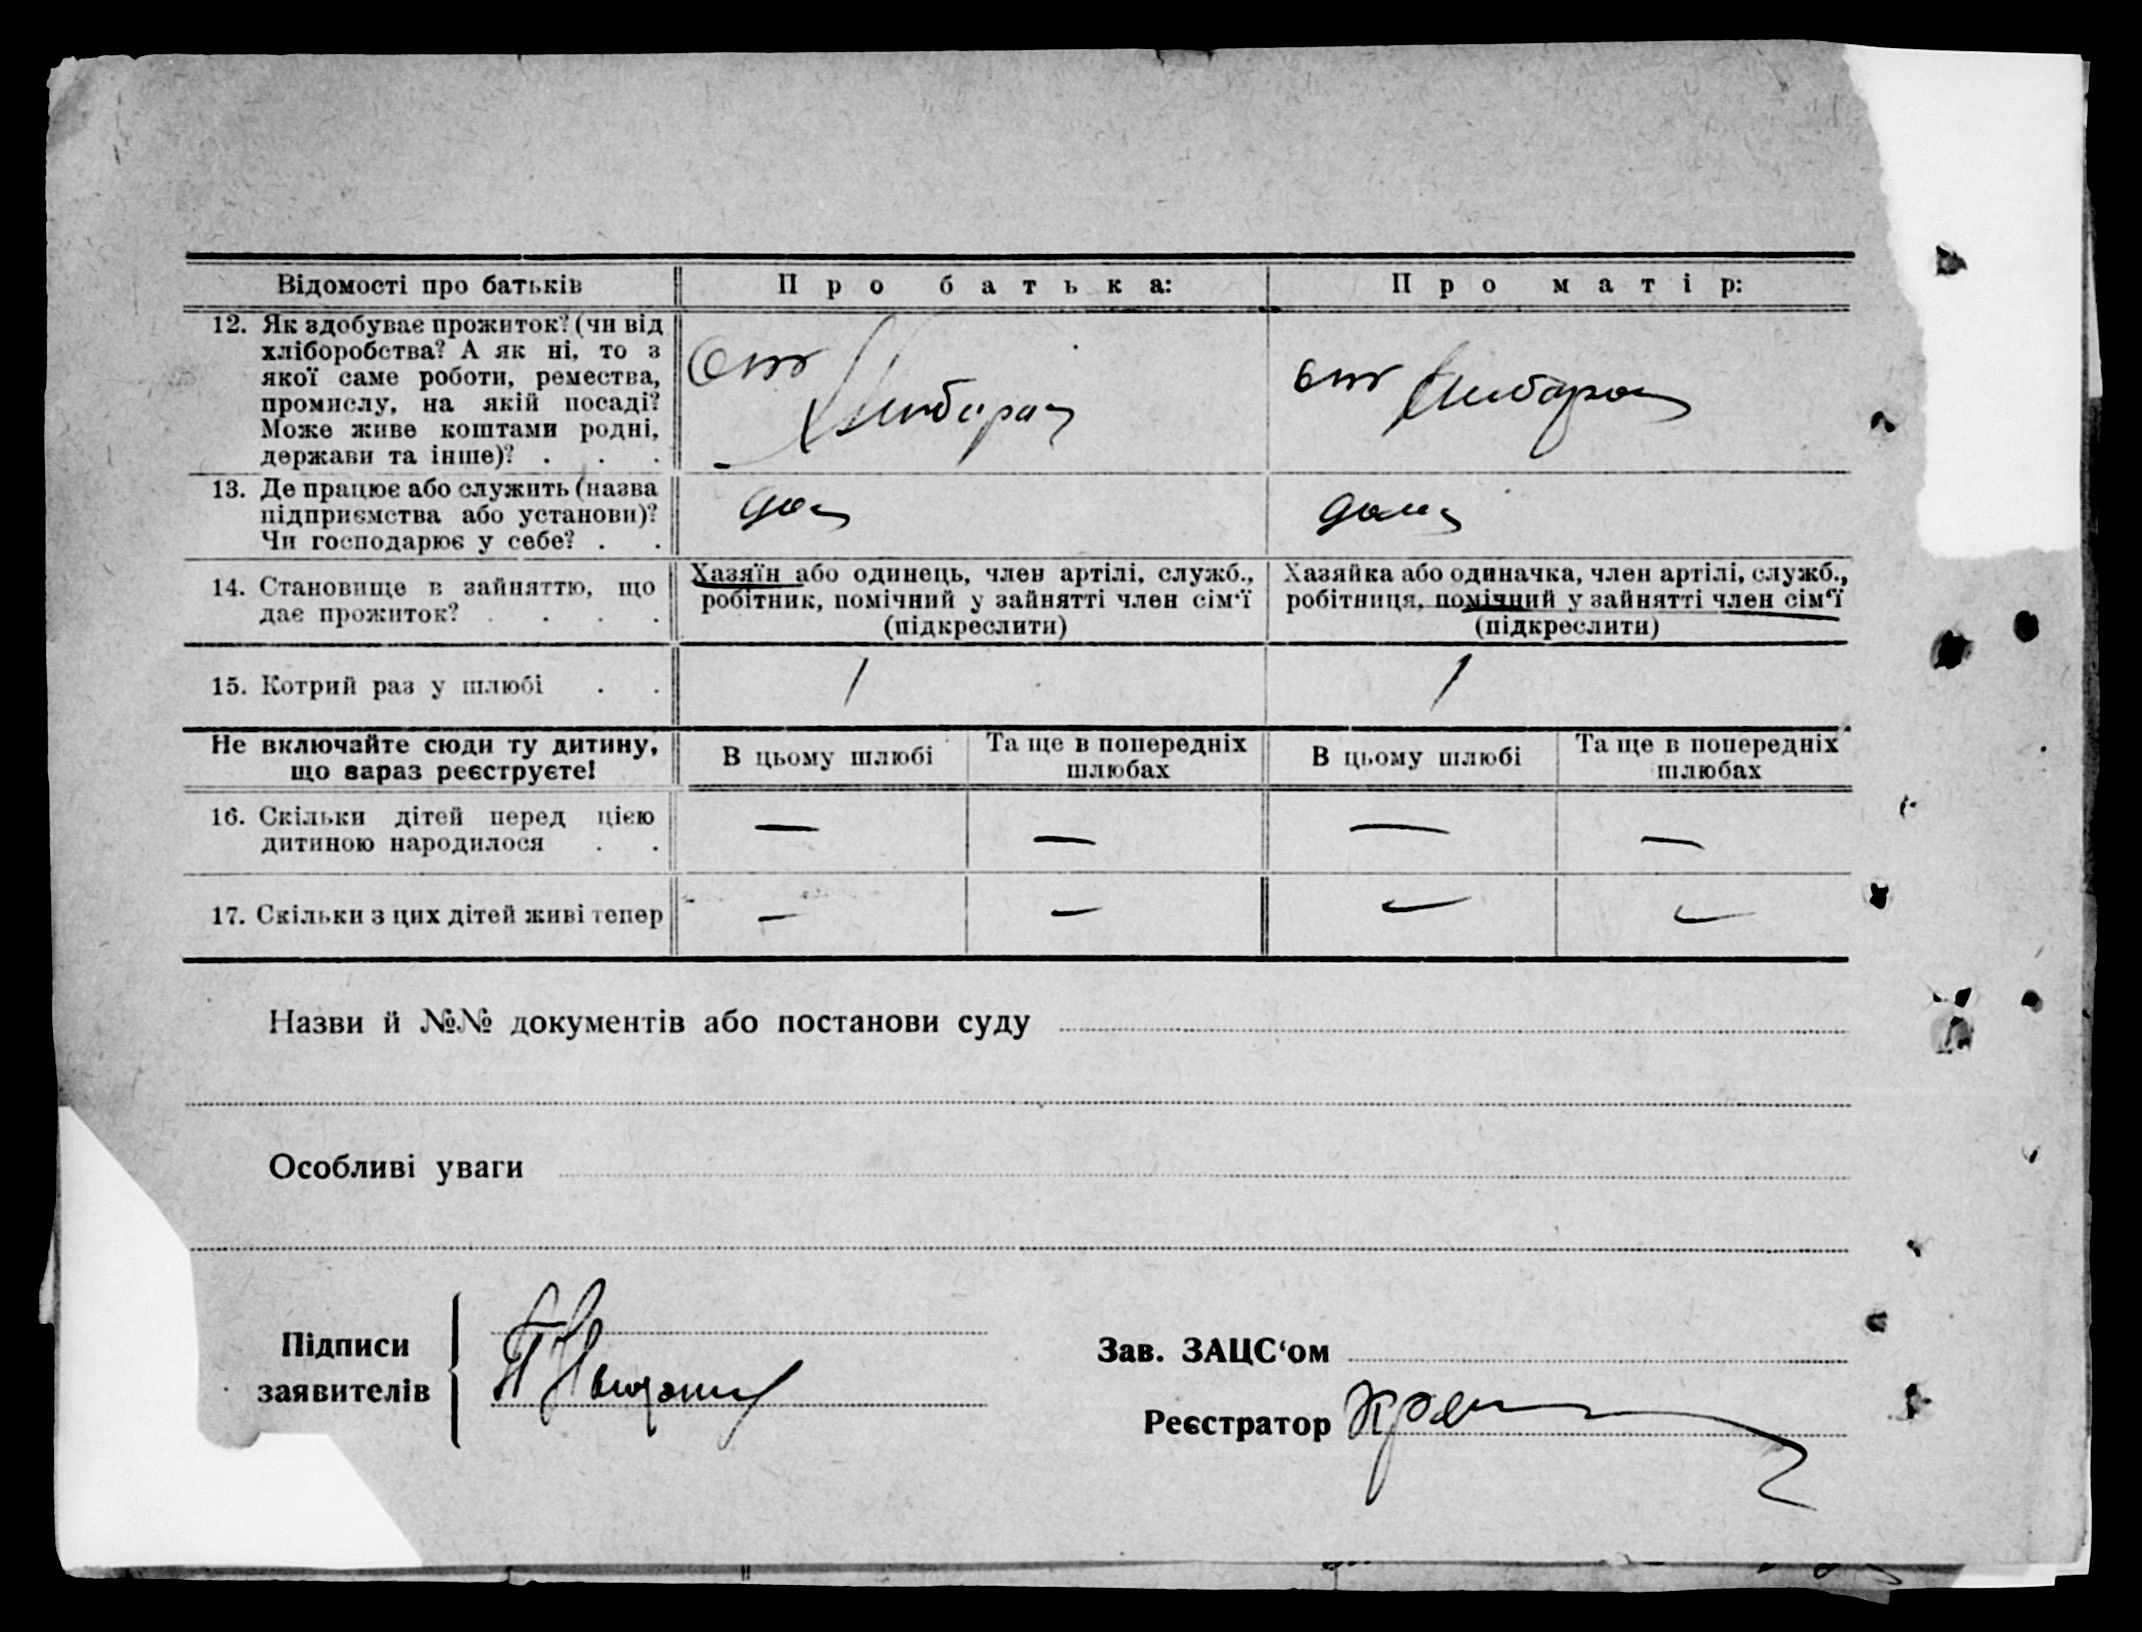 Відомості про батьків
Про батька:
Про матір:
12. Як здобуває прожиток? (чи від
хліборобства? А як ні, то з
якої саме роботи, ремества,
промислу, на якій посаді?
Може живе коштами родні,
держави та інше)? . . .
От
от
13. Де працює або служить (назва
підприємства або установи)?
Чи господарює у себе? . .
дома
14. Становище в зайняттю, що
дає прожиток? . . . .
Хазяїн або одинець, член артілі, служб.,
робітник, помічний у зайнятті член сім'ї
(підкреслити)
Хазяйка або одиначка, член артілі, служб.,
робітниця, помічний у зайнятті член сім'ї
(підкреслити)
15. Котрий раз у шлюбі . .
1
1
Не включайте сюди ту дитину,
що зараз реєструєте!
В цьому шлюбі
Та ще в попередніх
шлюбах
В цьому шлюбі
Та ще в попередніх
шлюбах
16. Скільки дітей перед цією
дитиною народилося . .
— — — —
17. Скільки з цих дітей живі тепер
— — — —
Назви й №№ документів або постанови суду
Особливі уваги
Підписи
заявителів
Зав. ЗАЦС'ом
Реєстратор